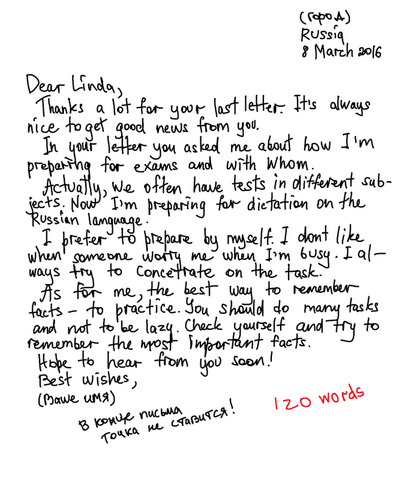 (город)
Russia
8 March 2016
Dear Linda,
Thanks a lot for your last letter. It's always
nice to get good news from you.
In your letter you asked me about how I'm
preparing for exams and with whom.
Actually, we often have tests in different sub-
jects. Now I'm preparing for dictation on the
Russian language.
I prefer to prepare by myself. I dont like
when someone worry me when I'm busy. I al-
ways try to concetrate on the task.
As for me, the best way to remember
facts – to practice. You should do many tasks
and not to be lazy. Check yourself and try to
remember the most important facts.
Hope to hear from you soon!
Best wishes,
(Ваше имя)
В конце письма
точка не ставится!
120 words